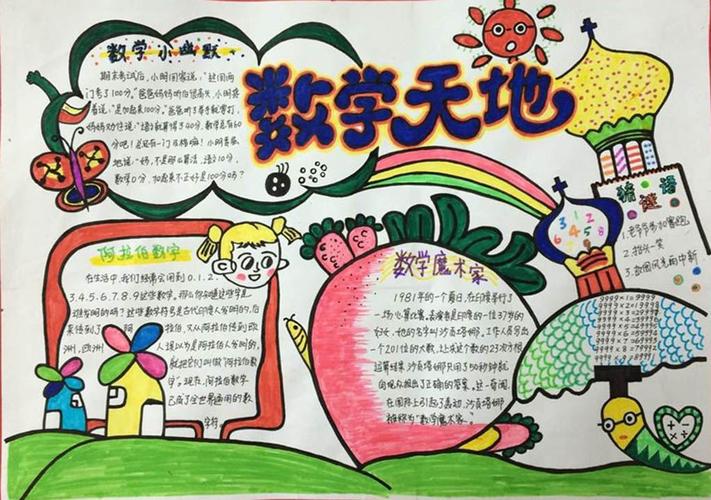 数学天地
数学小幽默
期末考试后，小明回家说："这回两
门考了100分。"爸爸妈妈听后很高兴，小明接
着说："是加起来100分。"爸爸听了举手就要打，
分吧！总还有一门及格嘛！小明喜喜
地说："妈，不是那么算法，语文10分，
数学0分，加起来不正好是100分吗？
阿拉伯数字
在生活中，我们经常会用到0.1.2.
3.4.5.6.7.8.9这些数字。那么你知道这些是
谁发明的吗？这些数字符号是古代印度人发明的，后
来传到了阿拉伯，又从阿拉伯传到欧
洲，欧洲人误以为是阿拉伯人发明的，
就把它们叫做"阿拉伯数
字"。现在，阿拉伯数字
已成了全世界通用的数
字符。
数学魔术家
1981年的一个夏日，在印度举行了
一场心算比赛。表演者是印度的一位37岁的
妇女，她的名字叫沙贡塔娜。工作人员写出
一个201位的大数，让求这个数的23次方根
运算结果，沙贡塔娜只用了50秒钟就
向观众报出了正确的答案。这一奇闻，
在国际上引起了轰动，沙贡塔娜
被称为"数学魔术家"。
猜谜语
2.抬头一笑
3.故国风光雨中新
3 1 2
9999×1=9999